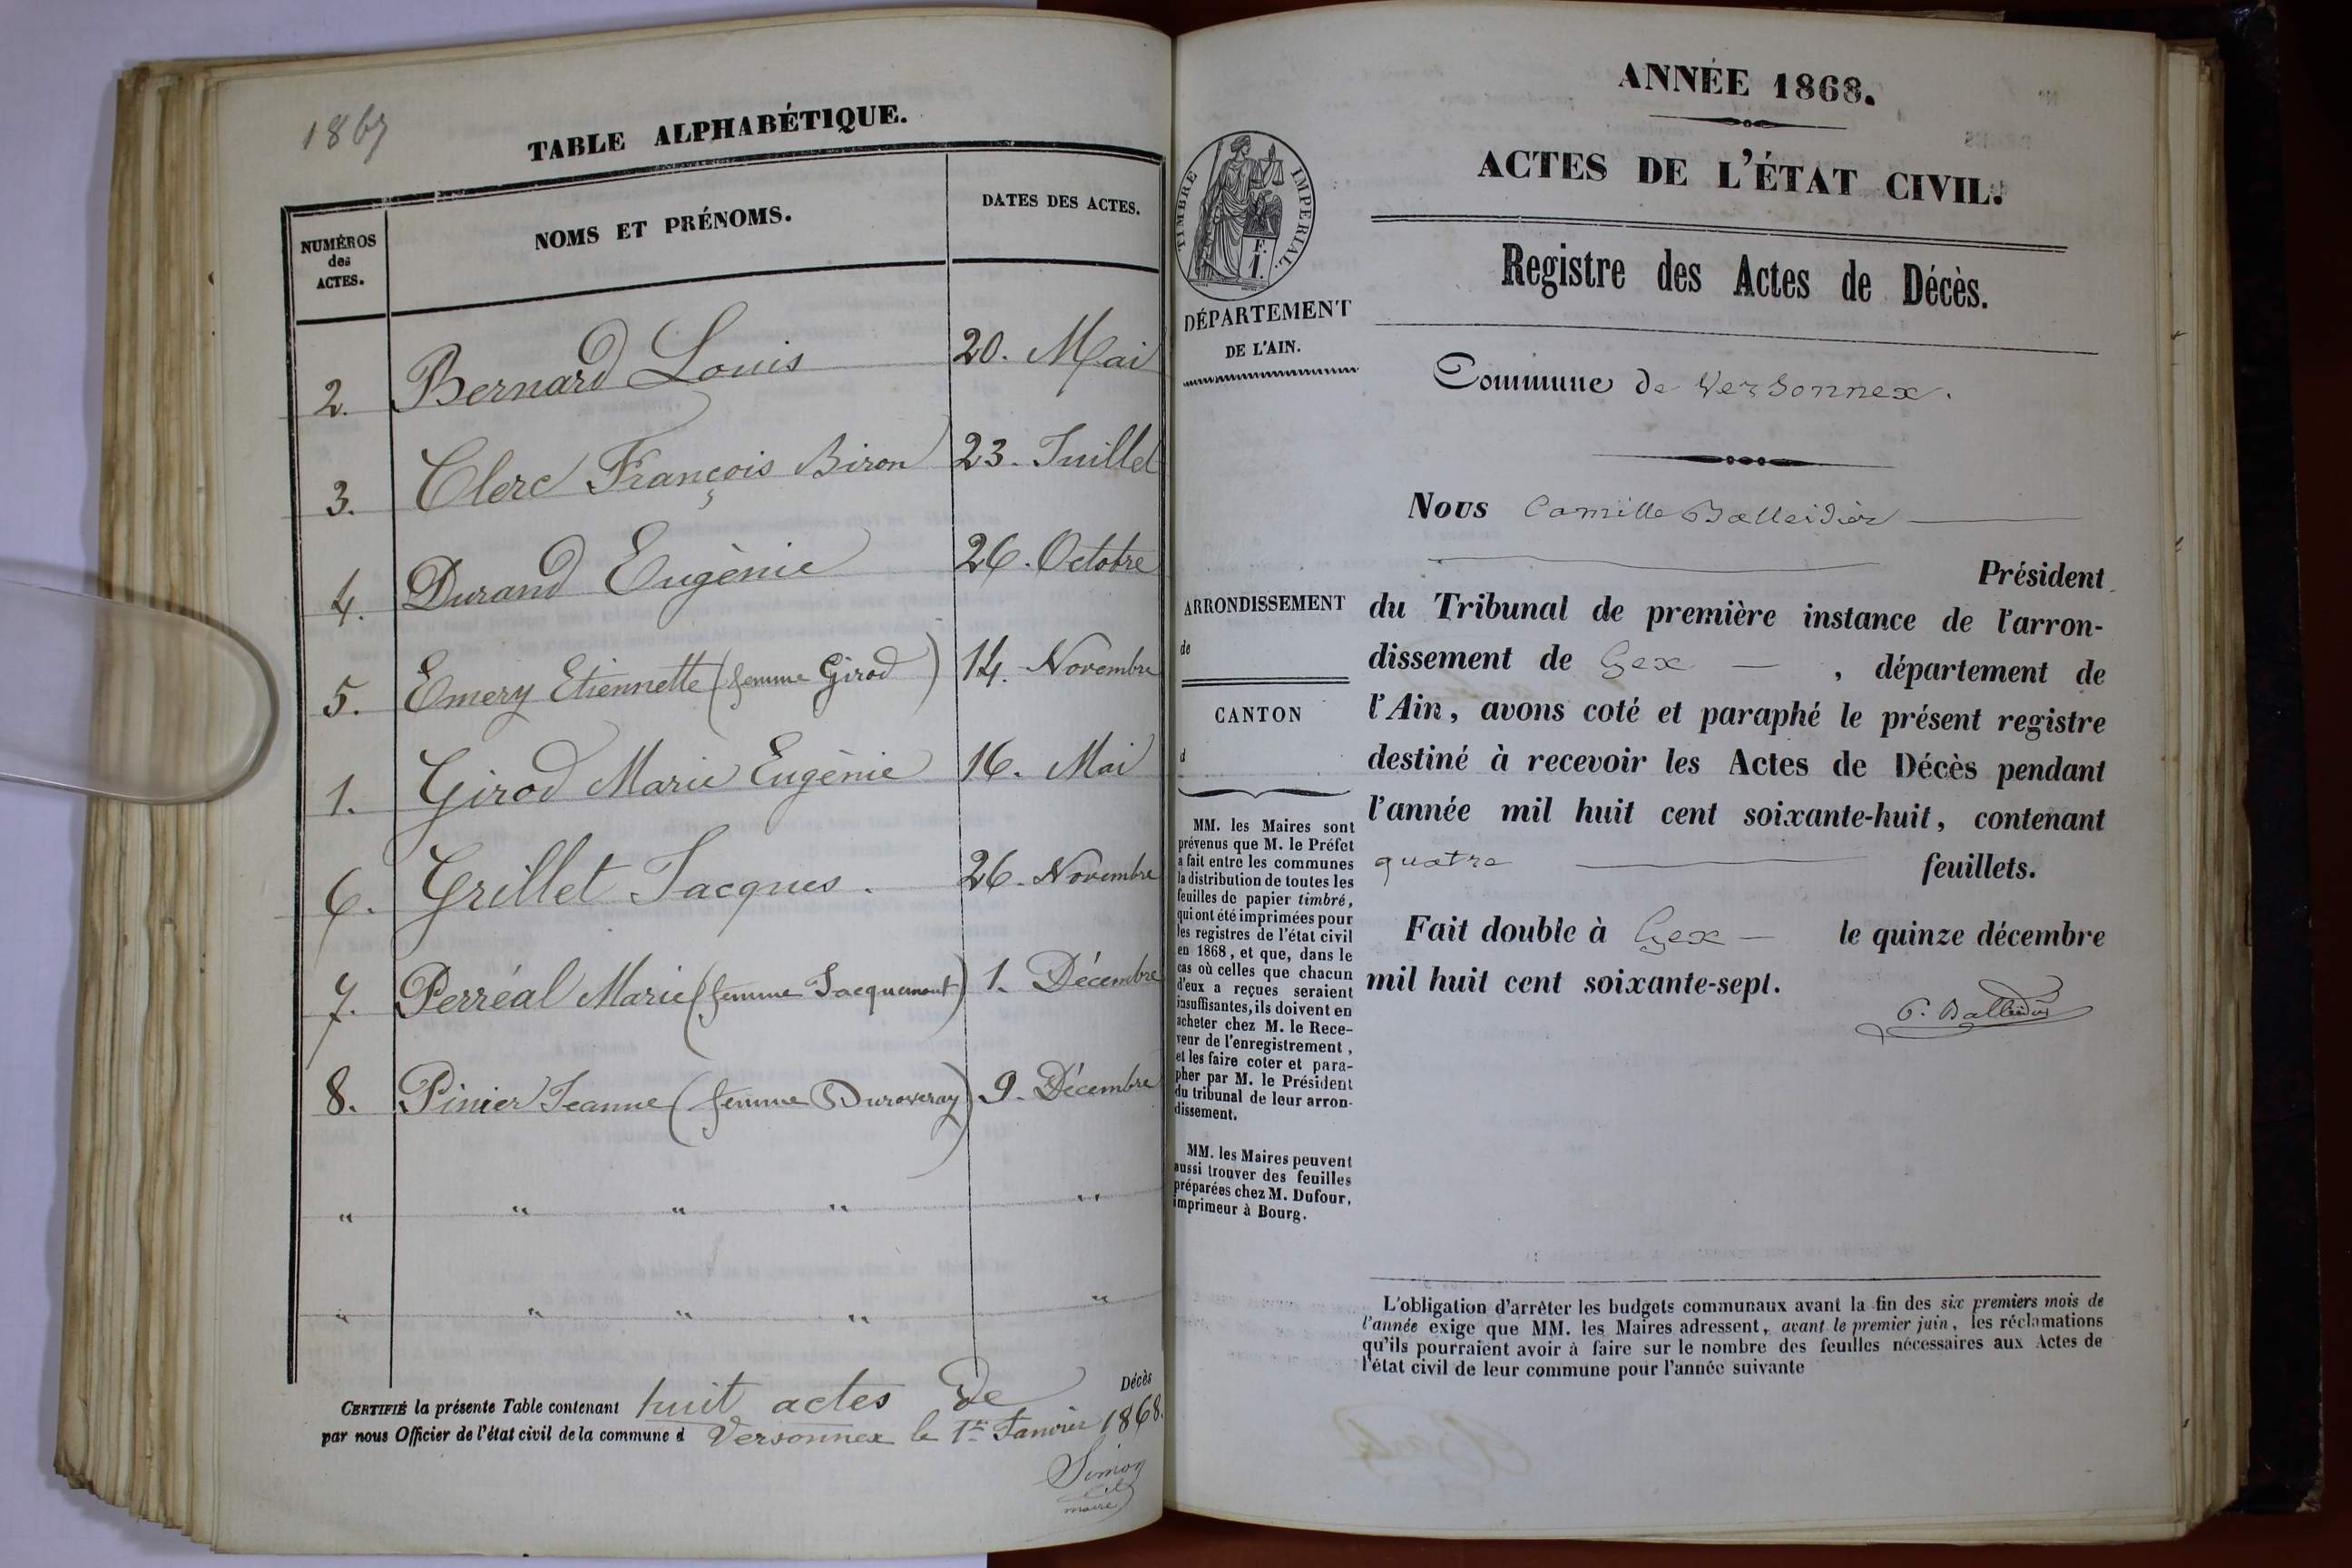 1867
TABLE ALPHABÉTIQUE.
NUMÉROS
des
ACTES.
NOMS ET PRÉNOMS.
DATES DES ACTES.
2. Bernard Louis 20. Mai
3. Clerc François Biron 23. Juillet
4. Durand Eugènie 26. Octobre
5. Emery Etiennette (femme Girod) 14. Novembre
1. Girod Marie Eugènie 16. Mai
6. Grillet Jacques. 26. Novembre
7. Perréal Marie (femme Jacquemont) 1. Décembre
8. Pinier Jeanne (femme Duroveray) 9. Décembre
" " " " "
" " " " "
CERTIFIÉ la présente Table contenant huit actes de Décès
par nous Officier de l'état civil de la commune d Versonnex le 1er Janvier 1868.
Simon
maire
TIMBRE IMPERIAL.
DÉPARTEMENT
DE L'AIN.
ARRONDISSEMENT
de
CANTON
d
MM. les Maires sont
prévenus que M. le Préfet
a fait entre les communes
la distribution de toutes les
feuilles de papier timbré,
qui ont été imprimées pour
les registres de l'état civil
en 1868, et que, dans le
cas où celles que chacun
d'eux a reçues seraient
insuffisantes, ils doivent en
acheter chez M. le Rece-
veur de l'enregistrement,
et les faire coter et para-
pher par M. le Président
du tribunal de leur arron-
dissement.
MM. les Maires peuvent
aussi trouver des feuilles
préparées chez M. Dufour,
imprimeur à Bourg.
ANNÉE 1868.
ACTES DE L'ÉTAT CIVIL.
Registre des Actes de Décès.
Commune de Versonnex.
Nous Camille Balleidier
Président
du Tribunal de première instance de l'arron-
dissement de Gex — , département de
l'Ain, avons coté et paraphé le présent registre
destiné à recevoir les Actes de Décès pendant
l'année mil huit cent soixante-huit, contenant
quatre feuillets.
Fait double à Gex — le quinze décembre
mil huit cent soixante-sept.
C. Balleidier
L'obligation d'arrêter les budgets communaux avant la fin des six premiers mois de
l'année exige que MM. les Maires adressent, avant le premier juin, les réclamations
qu'ils pourraient avoir à faire sur le nombre des feuilles nécessaires aux Actes de
l'état civil de leur commune pour l'année suivante